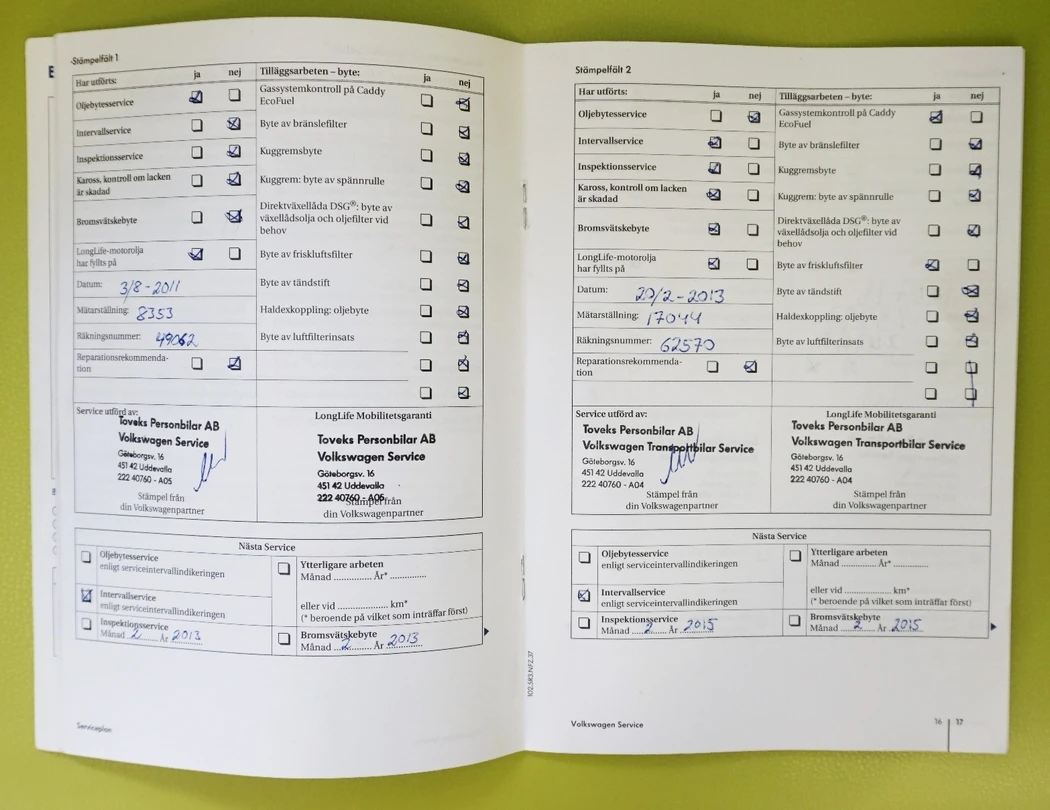 Stämpelfält 1
Har utförts: ja nej
Tilläggsarbeten – byte: ja nej
Oljebytesservice
Gassystemkontroll på Caddy
EcoFuel
Intervallservice
Byte av bränslefilter
Inspektionsservice
Kuggremsbyte
Kaross, kontroll om lacken
är skadad
Kuggrem: byte av spännrulle
Bromsvätskebyte
Direktväxellåda DSG®: byte av
växellådsolja och oljefilter vid
behov
LongLife-motorolja
har fyllts på
Byte av friskluftsfilter
Datum: 3/8-2011
Byte av tändstift
Mätarställning: 8353
Haldexkoppling: oljebyte
Räkningsnummer: 49062
Byte av luftfilterinsats
Reparationsrekommenda-
tion
Service utförd av:
Toveks Personbilar AB
Volkswagen Service
Göteborgsv. 16
451 42 Uddevalla
222 40760 - A05
Stämpel från
din Volkswagenpartner
LongLife Mobilitetsgaranti
Toveks Personbilar AB
Volkswagen Service
Göteborgsv. 16
451 42 Uddevalla
222 40760 - A05
Stämpel från
din Volkswagenpartner
Nästa Service
Oljebytesservice
enligt serviceintervallindikeringen
Ytterligare arbeten
Månad .............. År* .............
Intervallservice
enligt serviceintervallindikeringen
eller vid .................. km*
(* beroende på vilket som inträffar först)
Inspektionsservice
Månad 2 År 2013
Bromsvätskebyte
Månad 2 År 2013
Serviceplan
Stämpelfält 2
Har utförts: ja nej
Tilläggsarbeten – byte: ja nej
Oljebytesservice
Gassystemkontroll på Caddy
EcoFuel
Intervallservice
Byte av bränslefilter
Inspektionsservice
Kuggremsbyte
Kaross, kontroll om lacken
är skadad
Kuggrem: byte av spännrulle
Bromsvätskebyte
Direktväxellåda DSG®: byte av
växellådsolja och oljefilter vid
behov
LongLife-motorolja
har fyllts på
Byte av friskluftsfilter
Datum: 20/2-2013
Byte av tändstift
Mätarställning: 17044
Haldexkoppling: oljebyte
Räkningsnummer: 62570
Byte av luftfilterinsats
Reparationsrekommenda-
tion
Service utförd av:
Toveks Personbilar AB
Volkswagen Transportbilar Service
Göteborgsv. 16
451 42 Uddevalla
222 40760 - A04
Stämpel från
din Volkswagenpartner
LongLife Mobilitetsgaranti
Toveks Personbilar AB
Volkswagen Transportbilar Service
Göteborgsv. 16
451 42 Uddevalla
222 40760 - A04
Stämpel från
din Volkswagenpartner
Nästa Service
Oljebytesservice
enligt serviceintervallindikeringen
Ytterligare arbeten
Månad ............. År* .............
Intervallservice
enligt serviceintervallindikeringen
eller vid .................. km*
(* beroende på vilket som inträffar först)
Inspektionsservice
Månad 2 År 2015
Bromsvätskebyte
Månad 2 År 2015
102.5R3.NFZ.37
Volkswagen Service
16 17